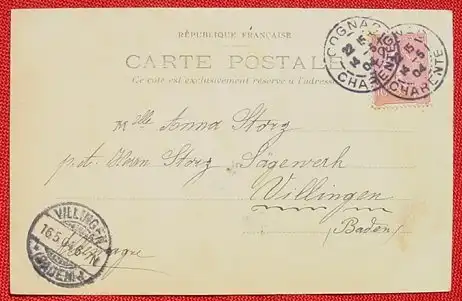 RÉPUBLIQUE FRANÇAISE
CARTE POSTALE
Ce côté est exclusivement réservé à l'adresse
COGNAC
CHARENTE
CHARENTE
Mlle Anna Storz
p. ad. Herrn Storz, Sägewerk
Villingen
(Baden)
VILLINGEN
16.5.04.6-7N
(BADEN)